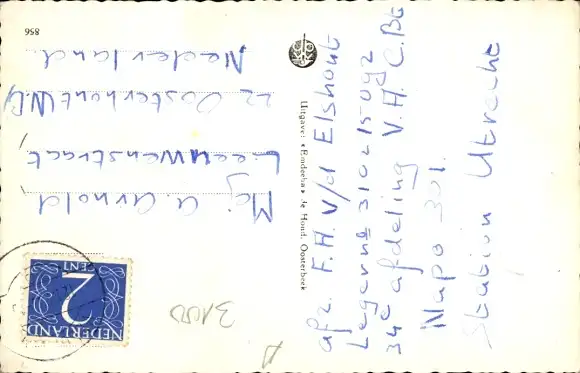 856
Mej A. Arnold
Leeuwenstraat
22 Oosterhout (N.B)
Nederland.
Uitgave: «Emdeeha» de Hond, Oosterbeek
afz. F.H. v/d Elshout
Legernº 310215092
34e afdeling V.H.C.Bt
Napo 301.
Station Utrecht
NEDERLAND
2
CENT
3,00